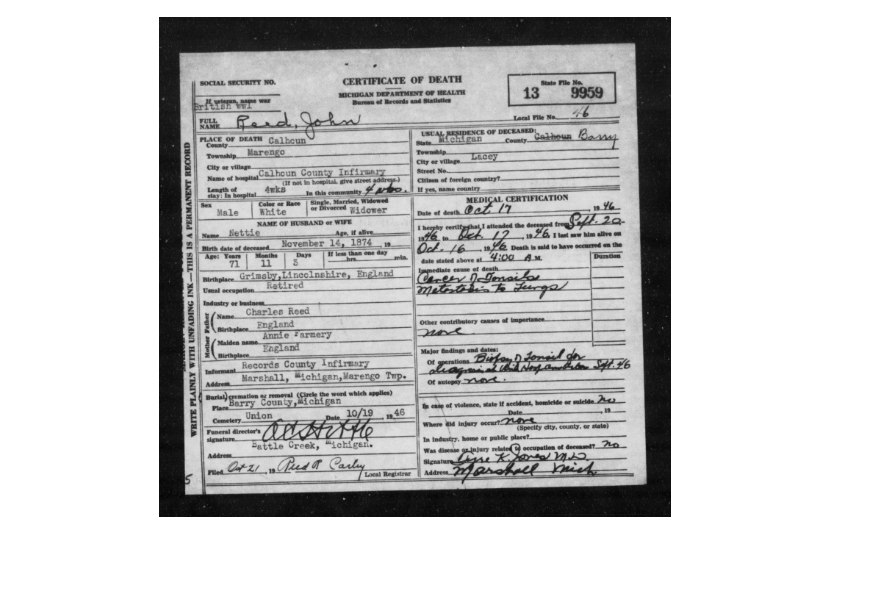 SOCIAL SECURITY NO.
CERTIFICATE OF DEATH
MICHIGAN DEPARTMENT OF HEALTH
Bureau of Records and Statistics
State File No.
13 9959
If veteran, name war
British WW1
Local File No. 46
FULL NAME Reed, John
PLACE OF DEATH
County Calhoun
Township Marengo
City or village
Name of hospital Calhoun County Infirmary
(If not in hospital, give street address.)
Length of stay: In hospital 4wks In this community 4 wks.
USUAL RESIDENCE OF DECEASED:
State Michigan County Calhoun Barry
Township Lacey
City or village
Street No.
Citizen of foreign country?
If yes, name country
Sex Male
Color or Race White
Single, Married, Widowed or Divorced Widower
NAME OF HUSBAND or WIFE
Name Nettie Age, if alive
Birth date of deceased November 14, 1874 19
Age: Years Months Days If less than one day
71 11 3 hrs. min.
Birthplace Grimsby, Lincolnshire, England
Usual occupation Retired
Industry or business
Father
Name Charles Reed
Birthplace England
Mother
Maiden name Annie Farmery
Birthplace England
Informant Records County Infirmary
Address Marshall, Michigan, Marengo Twp.
Burial, cremation or removal (Circle the word which applies)
Place Barry County, Michigan
Cemetery Union Date 10/19 1946
Funeral director's signature
Battle Creek, Michigan.
Address
Filed Oct 21 19 Local Registrar
MEDICAL CERTIFICATION
Date of death Oct 17 1946
I hereby certify that I attended the deceased from Sept. 20
1946 to Oct 17 1946 I last saw him alive on
Oct. 16 1946 Death is said to have occurred on the
date stated above at 4:00 A.M.
Immediate cause of death
Duration
Cancer of Tonsils
Metastasis to Lungs
Other contributory causes of importance
none
Major findings and dates:
Of operations Biopsy of Tonsil for
diagnosis at Sept. 46
Of autopsy none.
In case of violence, state if accident, homicide or suicide no
Date 19
Where did injury occur? none
(Specify city, county, or state)
In industry, home or public place?
Was disease or injury related to occupation of deceased? no
Signature K. Jones M.D.
Address Marshall Mich
WRITE PLAINLY WITH UNFADING INK—THIS IS A PERMANENT RECORD
5